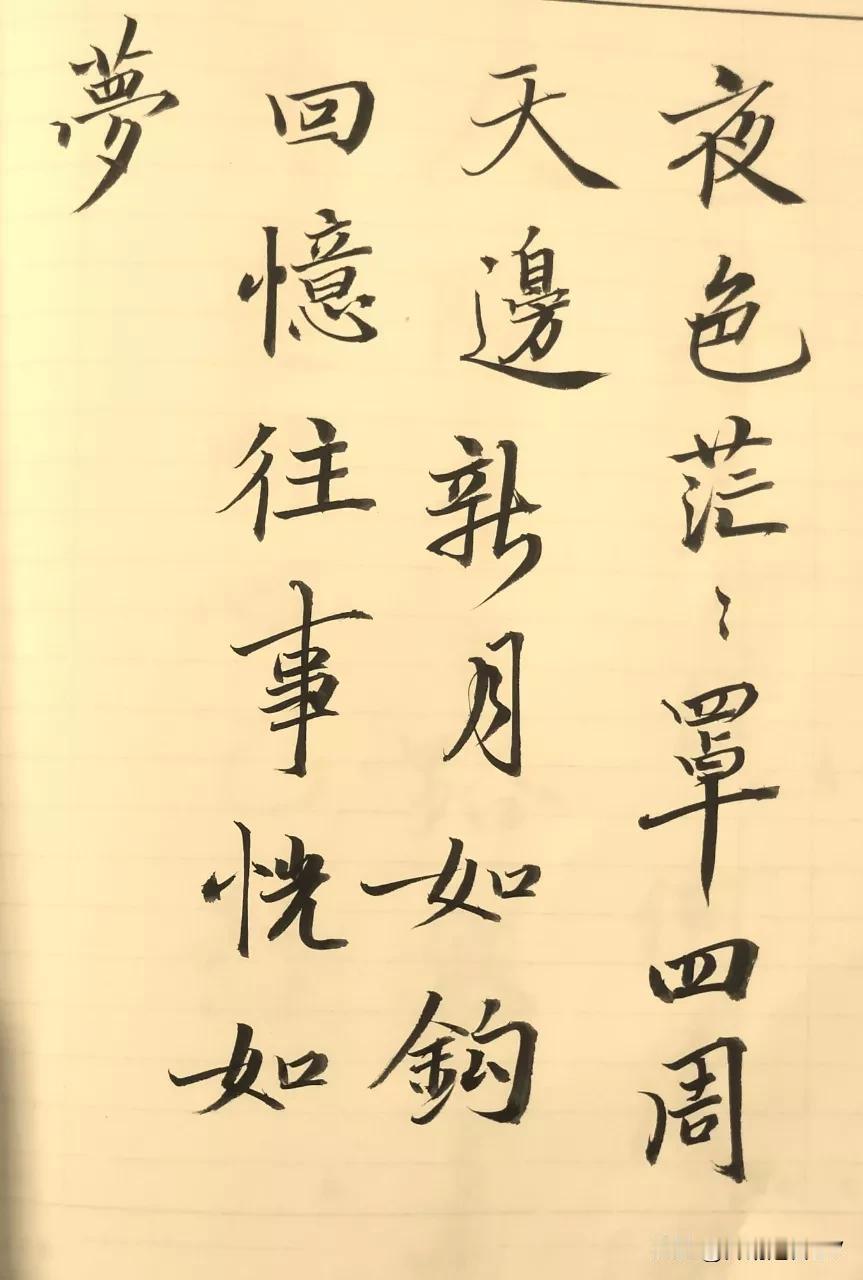 夜色茫〻罩四周
天邊新月如鈎
回憶往事恍如
夢